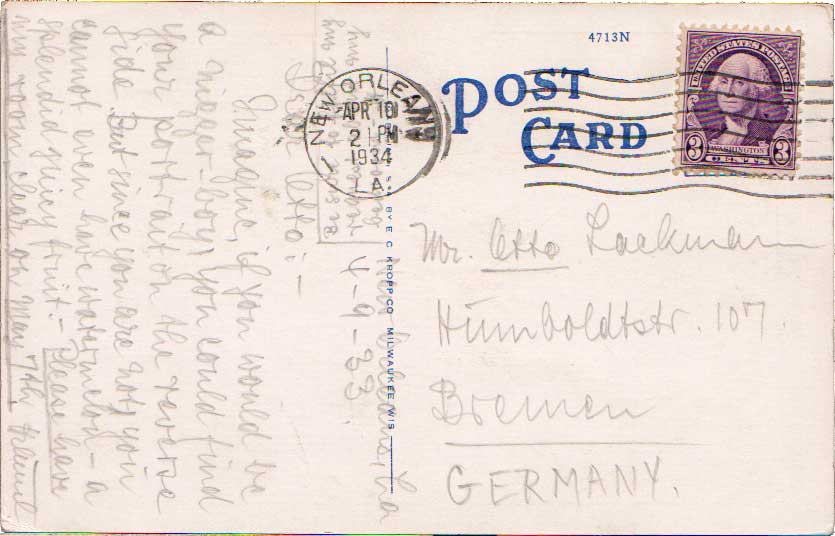 4713N
POST
CARD
UNITED STATES POSTAGE
WASHINGTON
3 CENTS 3
NEW ORLEANS
APR 10
2 PM
1934
LA.
BY E. C. KROPP CO. MILWAUKEE, WIS.
Mr. Otto Lackmann
Humboldtstr. 107.
Bremen
GERMANY.
New Orleans, La
4-9-33
Dear Otto:-
Imagine, if you would be
a nigger-boy, you could find
your portrait on the reverse
side. But since you are not, you
cannot even have watermelon - a
splendid juicy fruit. - Please have
my room clear on May 7th